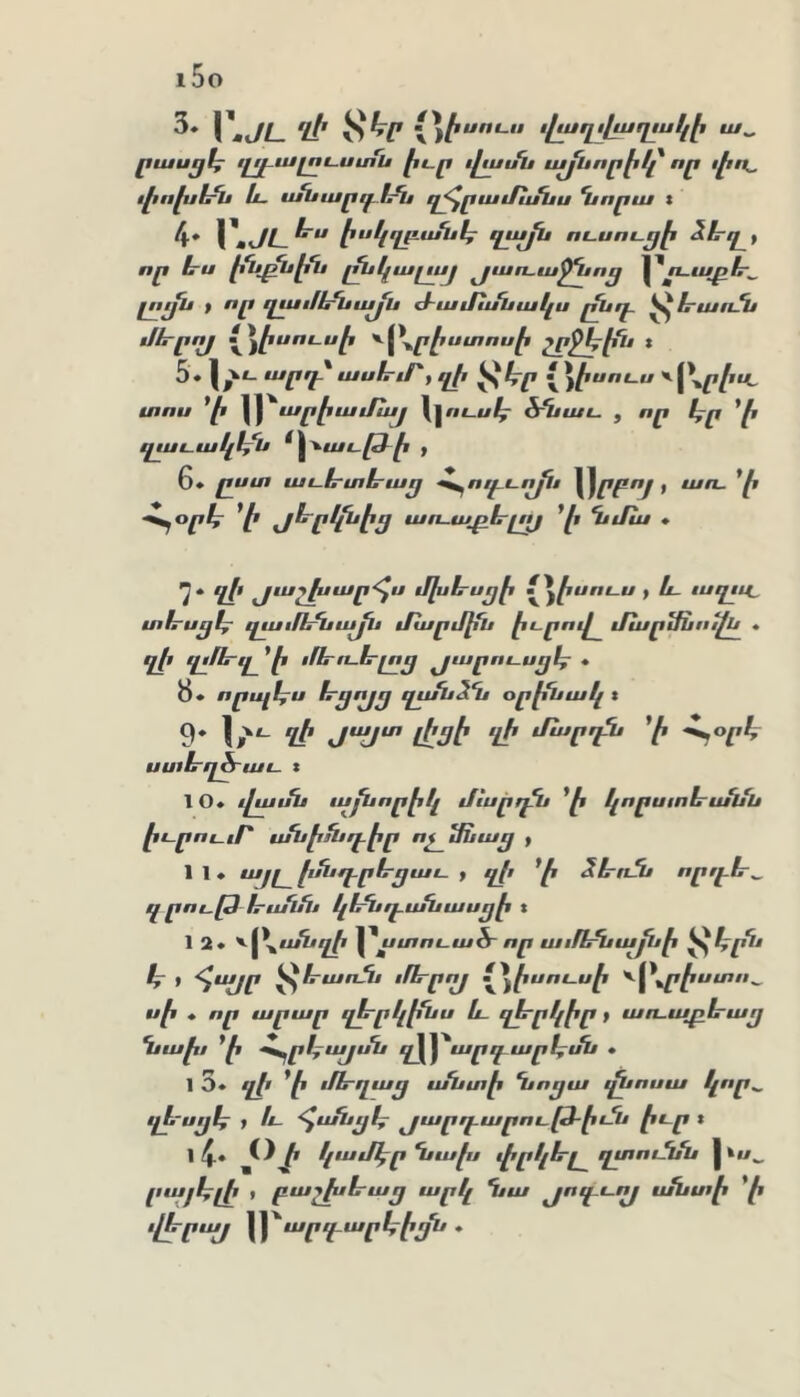 150
3. Այլ զի Տէր Յիսուս վաղվաղակի ա֊
րասցէ զգալուստն իւր վասն այնորիկ՝ որ փո֊
փոխեն և անարգեն զհրամանս նորա ։
4. Այլ ես իսկզբանէ զայն ուսուցի ձեզ,
որ ես ինքնին ընկալայ յառաջնոց Առաքե֊
լոյն , որ զամենայն ժամանակս ընդ Տեառն
մերոյ Յիսուսի Քրիստոսի շրջէին ։
5. Եւ արդ՝ ասեմ, զի Տէր Յիսուս Քրիս֊
տոս ՚ի Մարիամայ Կուսէ ծնաւ , որ էր ՚ի
զաւակէն Դաւթի ,
6. ըստ աւետեաց Հոգւոյն Սրբոյ , առ ՚ի
Հօրէ ՚ի յերկնից առաքելոյ ՚ի նմա .
7. զի յաշխարհս մխեսցի Յիսուս , և ազա֊
տեսցէ զամենայն մարմին իւրով մարմնովն .
զի զմեզ ՚ի մեռելոց յարուսցէ .
8. որպէս եցոյց զանձն օրինակ ։
9. Եւ զի յայտ լիցի զի մարդն ՚ի Հօրէ
ստեղծաւ ։
10. վասն այնորիկ մարդն ՚ի կորստեանն
իւրում անխնդիր ոչ մնաց ,
11. այլ խնդրեցաւ , զի ՚ի ձեռն որդե֊
գրութեանն կենդանասցի ։
12. Քանզի Աստուած որ ամենայնի Տէրն
է , հայր Տեառն մերոյ Յիսուսի Քրիստո֊
սի . որ արար զերկինս և զերկիր , առաքեաց
նախ ՚ի Հրէայսն զՄարգարէսն .
13. զի ՚ի մեղաց անտի նոցա զնոսա կոր֊
զեսցէ , և հանցէ յարդարութիւն իւր ։
14. Զի կամէր նախ փրկել զտունն Իս֊
րայէլի , բաշխեաց արկ նա յոգւոյ անտի ՚ի
վերայ Մարգարէիցն .